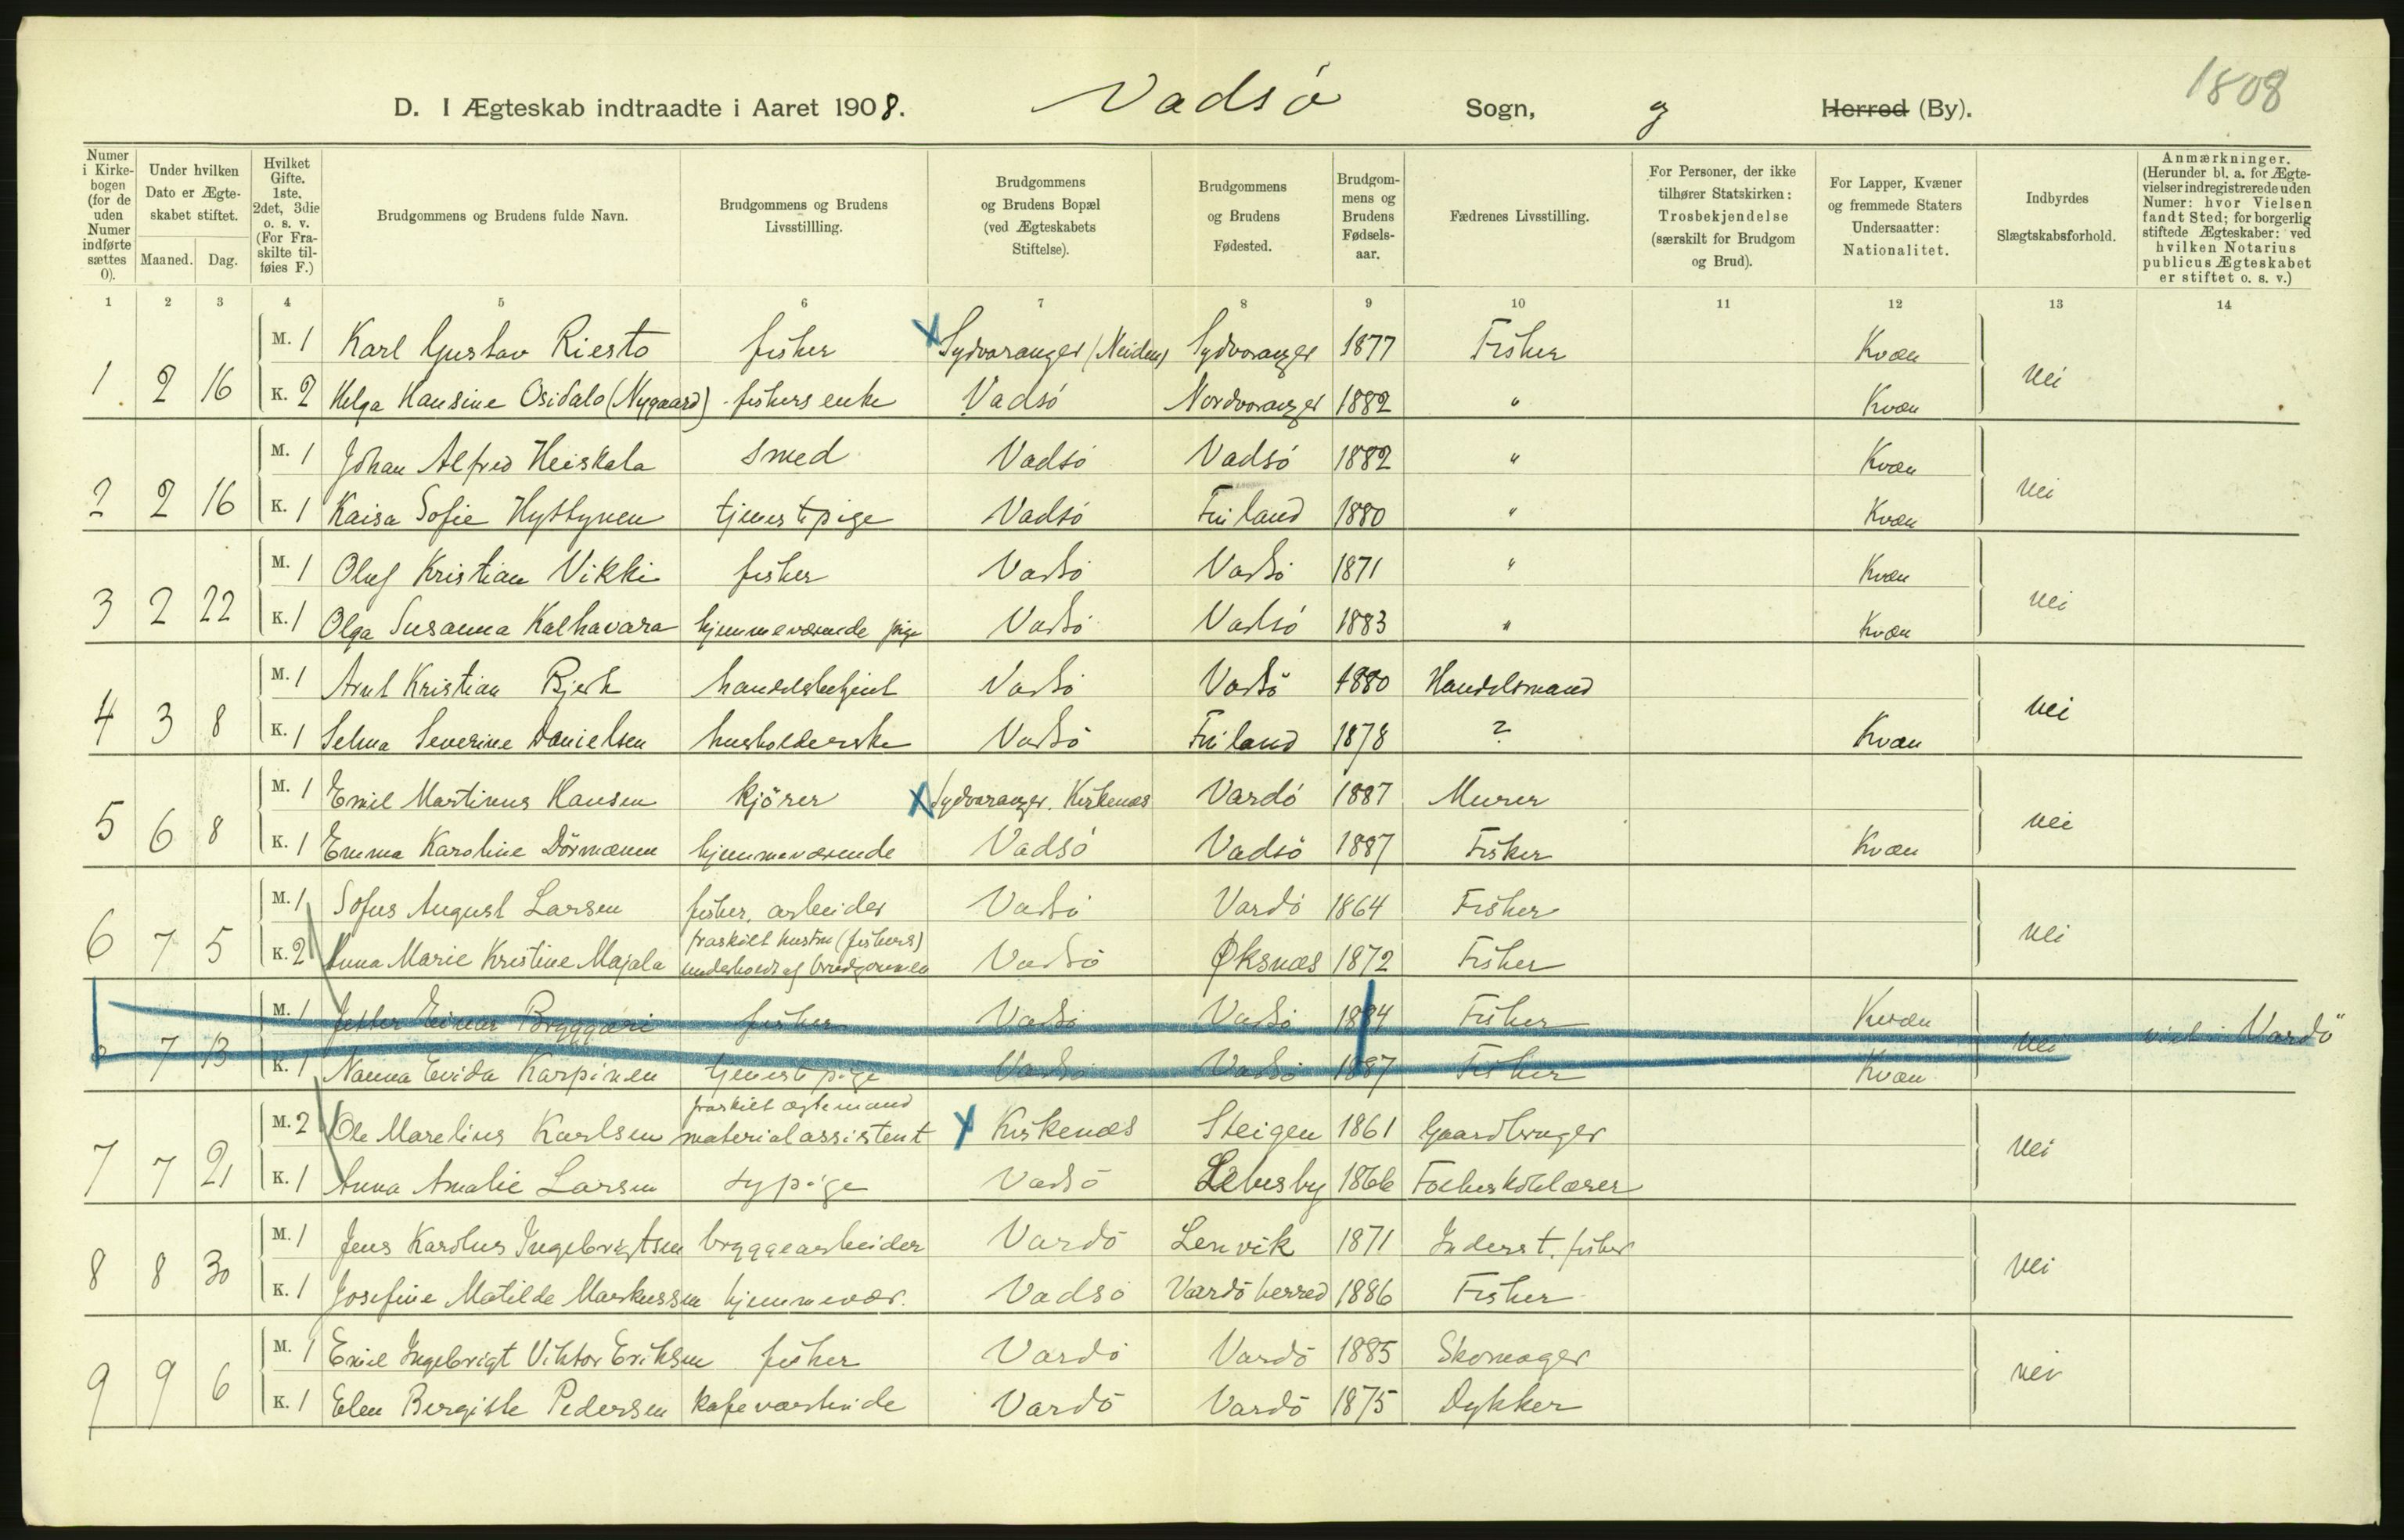 1808
D. I Ægteskab indtraadte i Aaret 1908. Vadsø Sogn, g Herred (By).
Numer i Kirkebogen (for de uden Numer indførte sættes 0).
Under hvilken Dato er Ægteskabet stiftet.
Maaned. Dag.
Hvilket Gifte. 1ste, 2det, 3die o. s. v. (For Fraskilte tilføies F.)
Brudgommens og Brudens fulde Navn.
Brudgommens og Brudens Livsstillling.
Brudgommens og Brudens Bopæl (ved Ægteskabets Stiftelse).
Brudgommens og Brudens Fødested.
Brudgommens og Brudens Fødselsaar.
Fædrenes Livsstilling.
For Personer, der ikke tilhører Statskirken: Trosbekjendelse (særskilt for Brudgom og Brud).
For Lapper, Kvæner og fremmede Staters Undersaatter: Nationalitet.
Indbyrdes Slægtskabsforhold.
Anmærkninger. (Herunder bl. a. for Ægtevielser indregistrerede uden Numer: hvor Vielsen fandt Sted; for borgerlig stiftede Ægteskaber: ved hvilken Notarius publicus Ægteskabet er stiftet o. s. v.)
1 2 3 4 5 6 7 8 9 10 11 12 13 14
M. 1 Karl Gustav Riesto fisker Sydvaranger (Neiden) Sydvaranger 1877 Fisker Kvæn
1 2 16 nei
K. 2 Helga Hansine Osidalo (Nygaard) fiskers enke Vadsø Nordvaranger 1882 " Kvæn
M. 1 Johan Alfred Heiskala smed Vadsø Vadsø 1882 " Kvæn
2 2 16 nei
K. 1 Kaisa Sofie Hyttynen tjenestpige Vadsø Finland 1880 " Kvæn
M. 1 Oluf Kristian Vikki fisker Vadsø Vadsø 1871 " Kvæn
3 2 22 nei
K. 1 Olga Susanna Kalhavara hjemmeværende pige Vadsø Vadsø 1883 " Kvæn
M. 1 Arnt Kristian Bjerk handelsbetjent Vadsø Vadsø 1880 Handelsmand
4 3 8 nei
K. 1 Selma Severine Danielsen husholderske Vadsø Finland 1878 ? Kvæn
M. 1 Emil Martinus Hansen kjører Sydvaranger. Kirkenæs Vardø 1887 Murer
5 6 8 nei
K. 1 Emma Karoline Dørmænen hjemmeværende Vadsø Vadsø 1887 Fisker Kvæn
M. 1 Sofus August Larsen fisker, arbeider Vadsø Vardø 1864 Fisker
6 7 5 nei
fraskilt hustru (fiskers)
K. 2 Anna Marie Kristine Majala underholdt af brudgommen Vadsø Øksnæs 1872 Fisker
M. 1 Einar Bryggari fisker Vadsø Vadsø 1884 Fisker Kvæn
7 13 nei viet i Vardø
K. 1 Nanna Evida Karpinen tjenestpige Vadsø Vadsø 1887 Fisker Kvæn
fraskilt ægtemand
M. 2 Ole Marelius Karlsen materialassistent Kirkenæs Steigen 1861 Gaardbruger
7 7 21 nei
K. 1 Anna Amalie Larsen sypige Vadsø Lebesby 1866 Folkeskolelærer
M. 1 Jens Karolus Ingebrigtsen bryggearbeider Vardø Lenvik 1871 Inderst. fisker
8 8 30 nei
K. 1 Josefine Matilde Markussen hjemmevær. Vadsø Vardø herred 1886 Fisker
M. 1 Emil Ingebrigt Viktor Eriksen fisker Vardø Vardø 1885 Skomager
9 9 6 nei
K. 1 Elen Bergitte Pedersen kafeværtinde Vardø Vardø 1875 Dykker